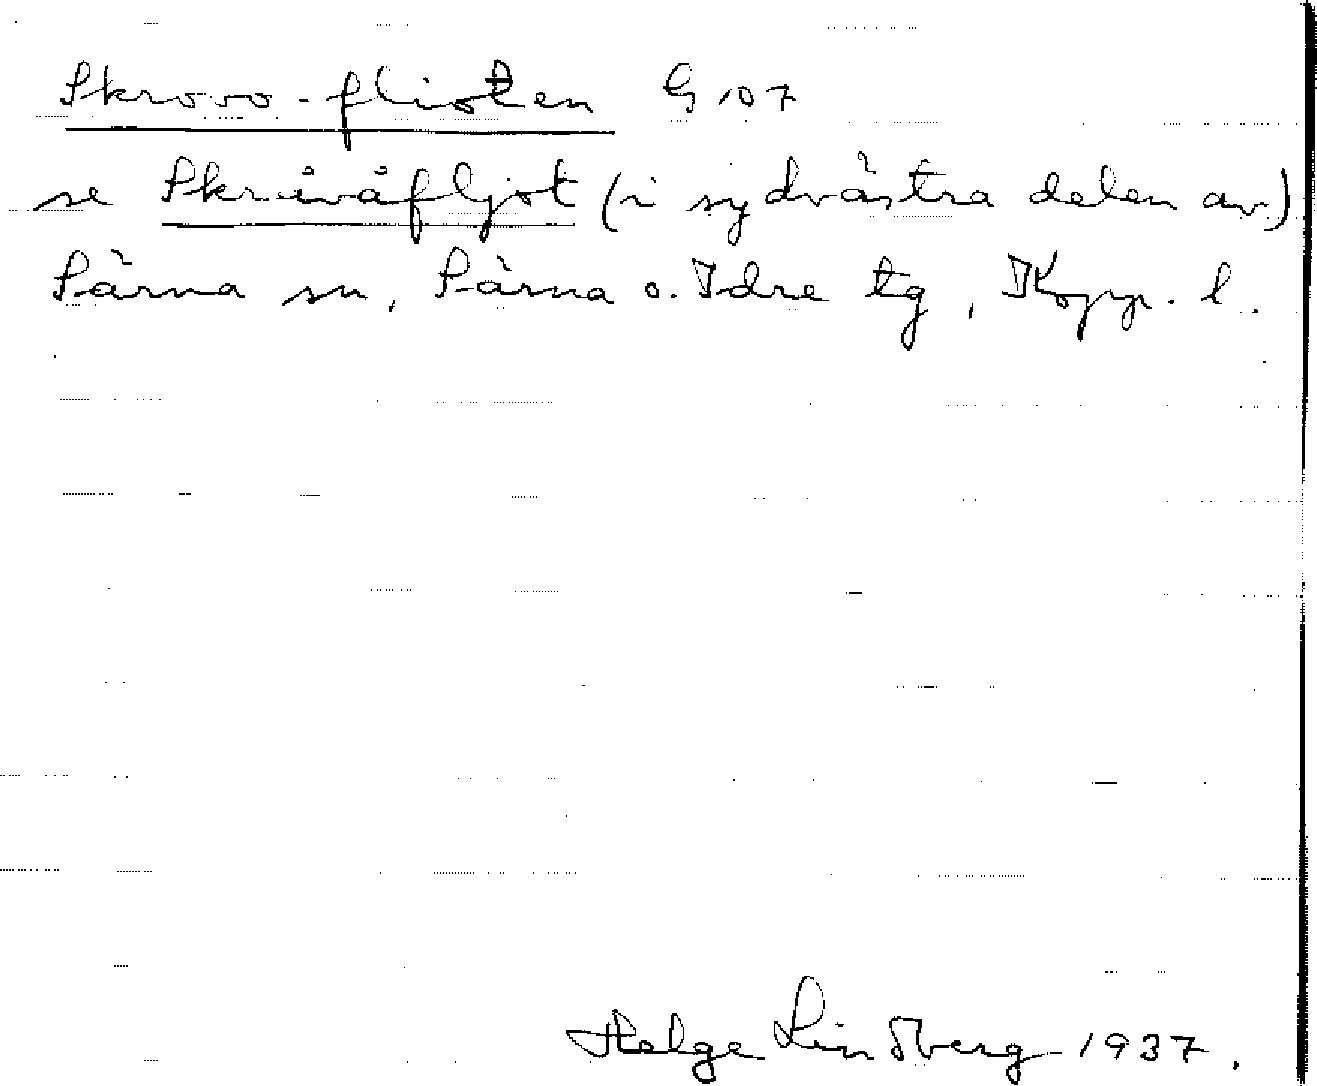 Skrovo-flioten G 107
se Skråvåfljot (i sydvästra delen av)
Särna sn, Särna o. Idre tg, Kopp. l.
Helge Lindberg 1937.